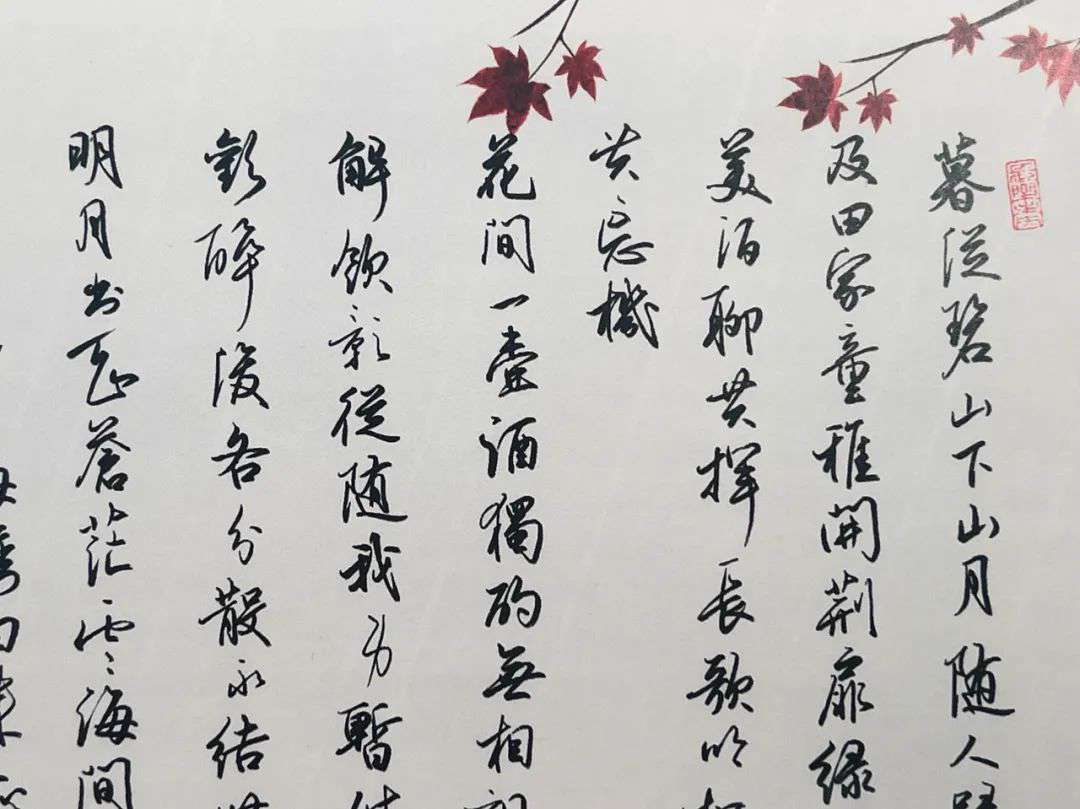 暮從碧山下山月随人
及田家童稚開荆扉緑
美酒聊共揮長歌吟
共忘機
花間一壺酒獨酌無相
解飲影從随我身暫
歡醉後各分散永結
明月出天山蒼茫雲海間